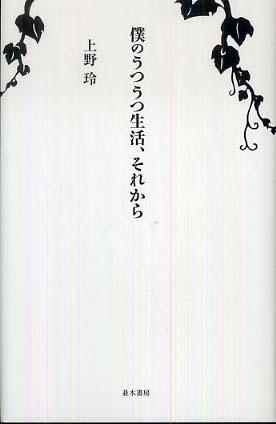 僕のうつうつ生活、それから
上野 玲
並木書房